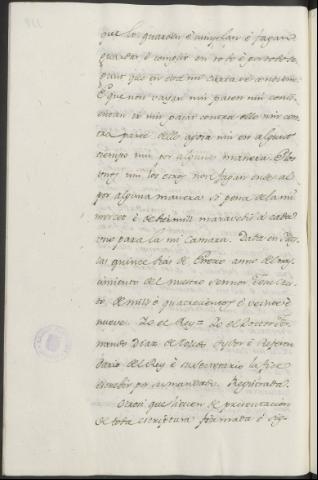 que lo guarden è cumplan è fagan
guardar è complir en todo è por todo se-
gunt que en esta mi carta se contiene.
E que non vayan nin pasen nin consi-
entan ir nin pasar contra ello nin con-
tra parte dello agora nin en algunt
tiempo nin por alguna manera. E los
unos nin los otros non fagan ende al
por alguna manera so pena de la mi
merced è de dies mill maravedis a cada
uno para la mi Camara. Data en
quince dias de Enero año del nas-
cimiento del nuestro Sennor Jesu Cris-
to de mill è quatrocientos è veinte è
nueve. Yo el Rey = Yo el Doctor Fer-
nando Diaz de Toledo Oydor è Referen-
dario del Rey è su Secretario la fise
escribir por su mandado. Registrada.
Otrosi que lieven de presentacion
de toda escriptura firmada è sig-